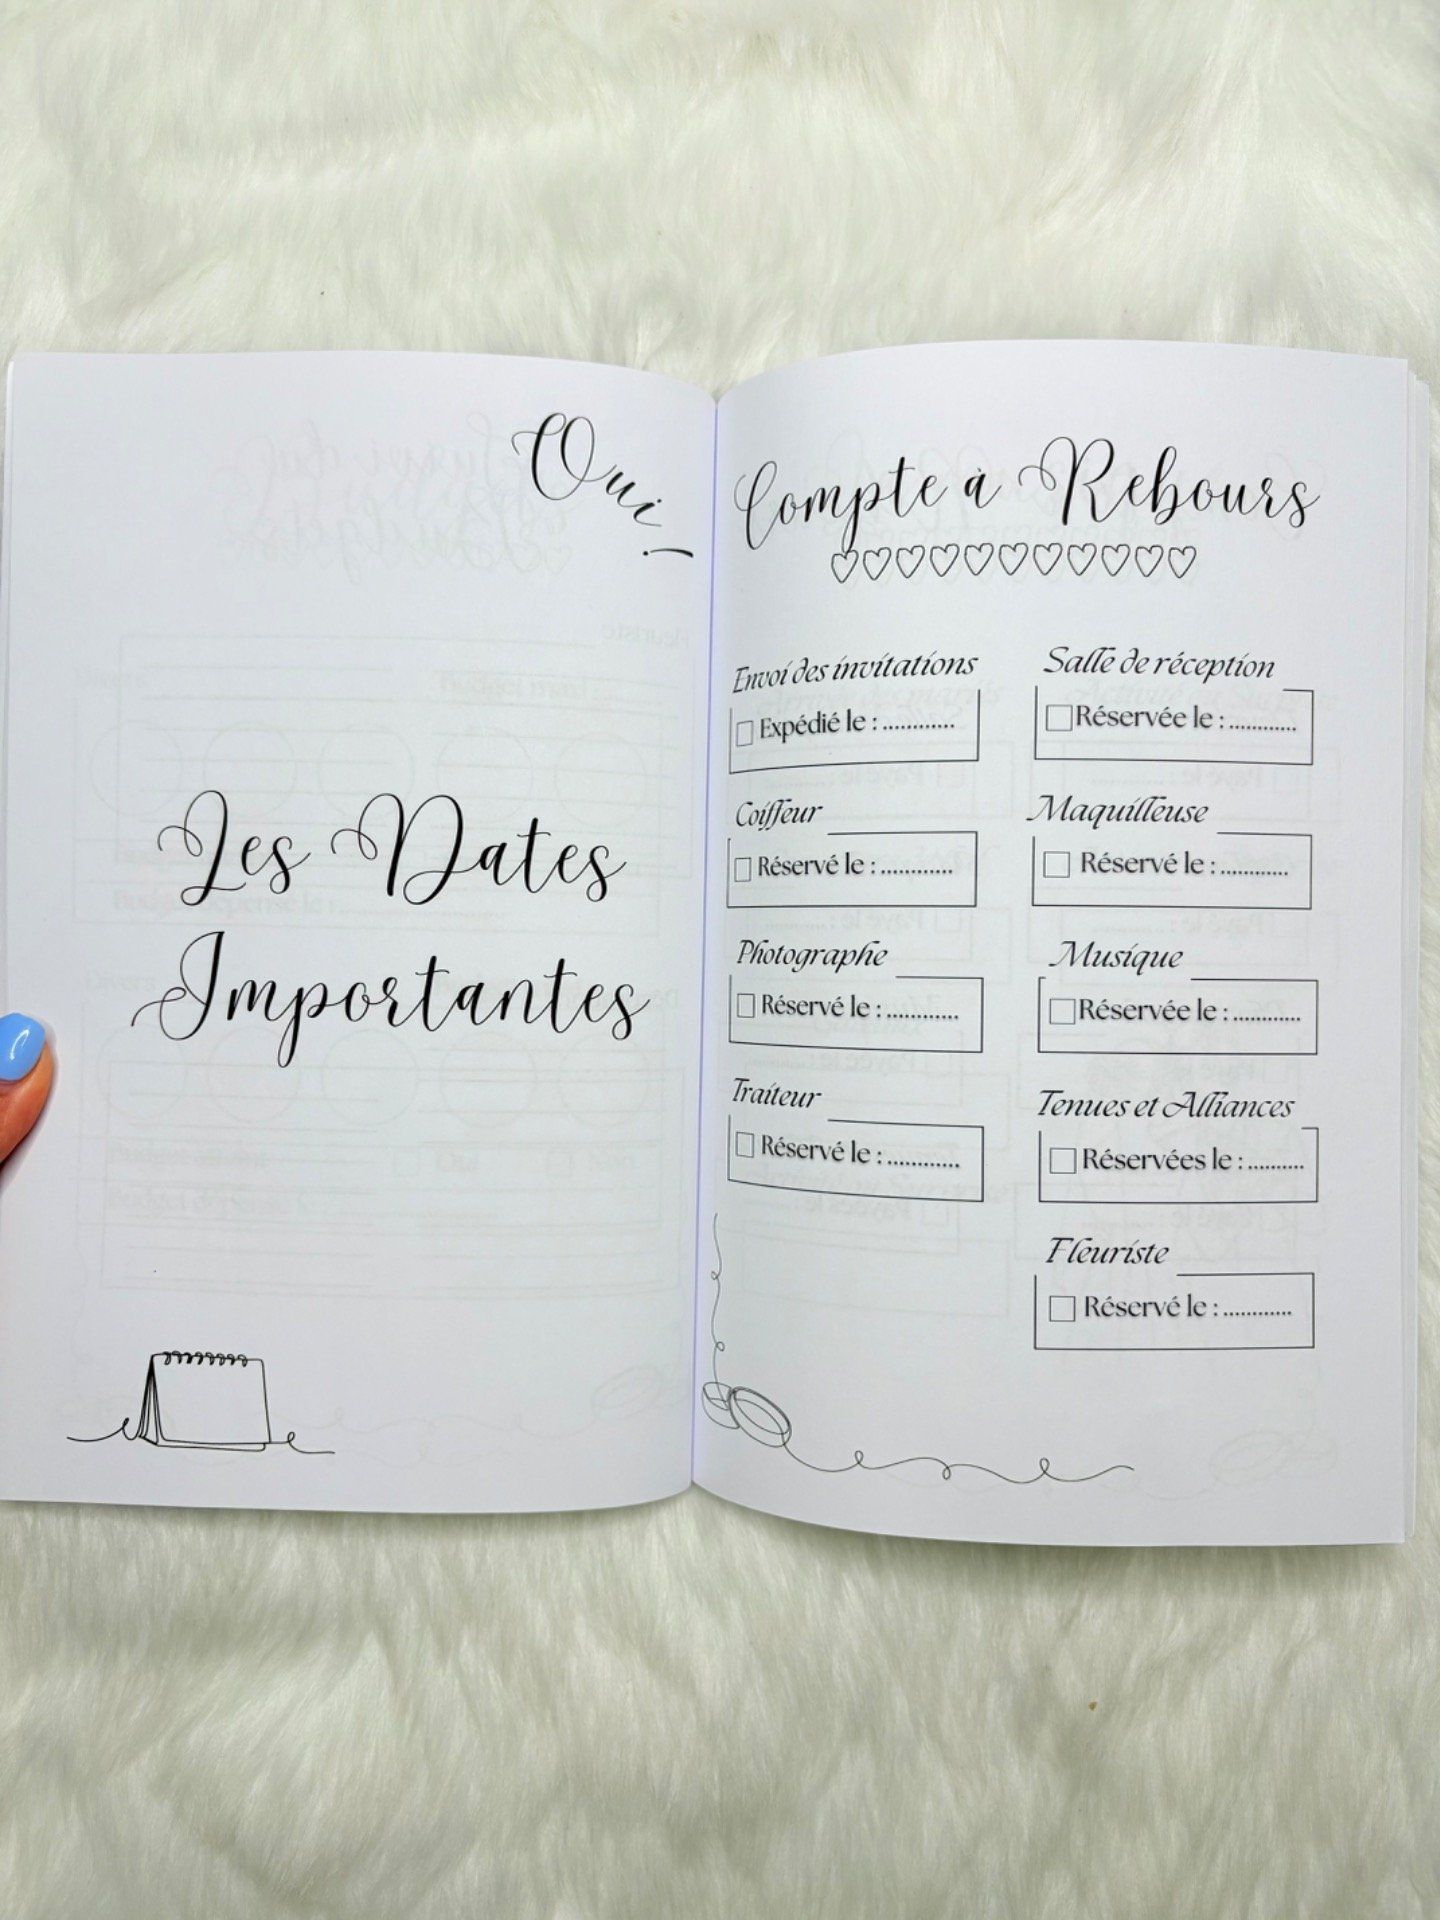 Oui !
Les Dates
Importantes
Compte à Rebours
Envoi des invitations
Expédié le : ............
Coiffeur
Réservé le : ............
Photographe
Réservé le : ............
Traiteur
Réservé le : ............
Salle de réception
Réservée le : ............
Maquilleuse
Réservé le : ............
Musique
Réservée le : ............
Tenues et Alliances
Réservées le : ..........
Fleuriste
Réservé le : ............